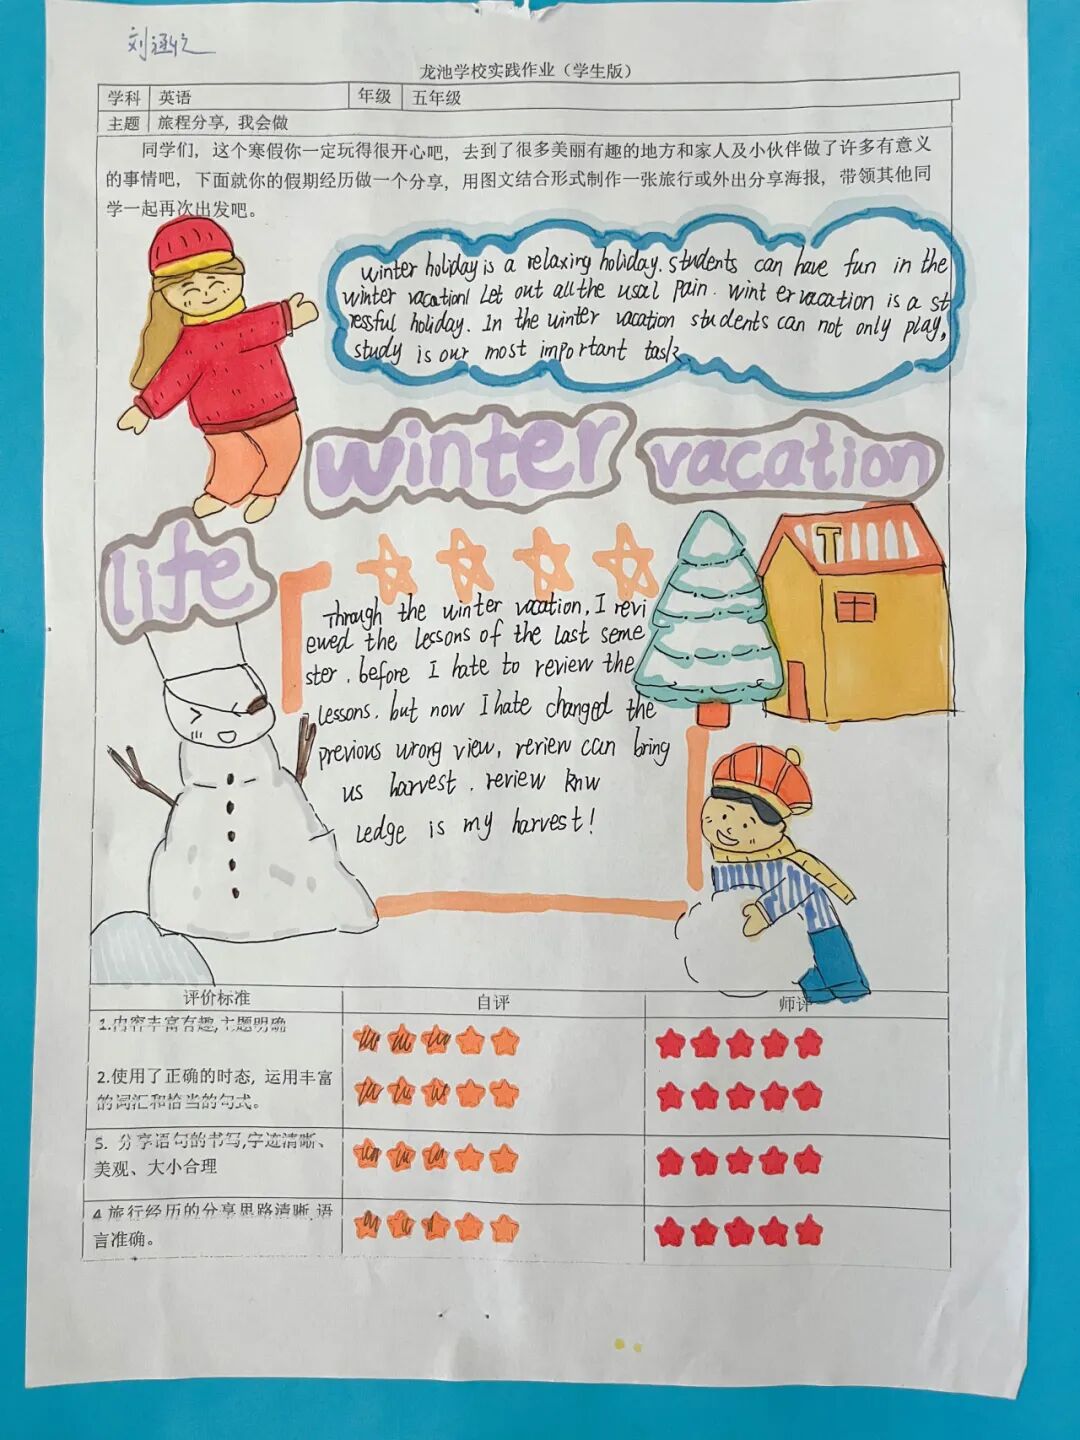 刘涵忆
龙池学校实践作业（学生版）
学科 英语 年级 五年级
主题 旅程分享，我会做
同学们，这个寒假你一定玩得很开心吧，去到了很多美丽有趣的地方和家人及小伙伴做了许多有意义
的事情吧，下面就你的假期经历做一个分享，用图文结合形式制作一张旅行或外出分享海报，带领其他同
学一起再次出发吧。
winter holiday is a relaxing holiday. students can have fun in the
winter vacation! Let out all the usal pain. wint er vacation is a st
ressful holiday. In the winter vacation students can not only play,
study is our most important task.
winter vacation
life
Through the winter vacation, I revi
ewed the lessons of the last seme
ster. before I hate to review the
lessons. but now I hate changed the
previous wrong view, review can bring
us harvest. review knw
ledge is my harvest!
评价标准 自评 师评
1.内容丰富有趣,主题明确
2.使用了正确的时态，运用丰富
的词汇和恰当的句式。
3. 分享语句的书写,字迹清晰、
美观、大小合理
4.旅行经历的分享思路清晰,语
言准确。